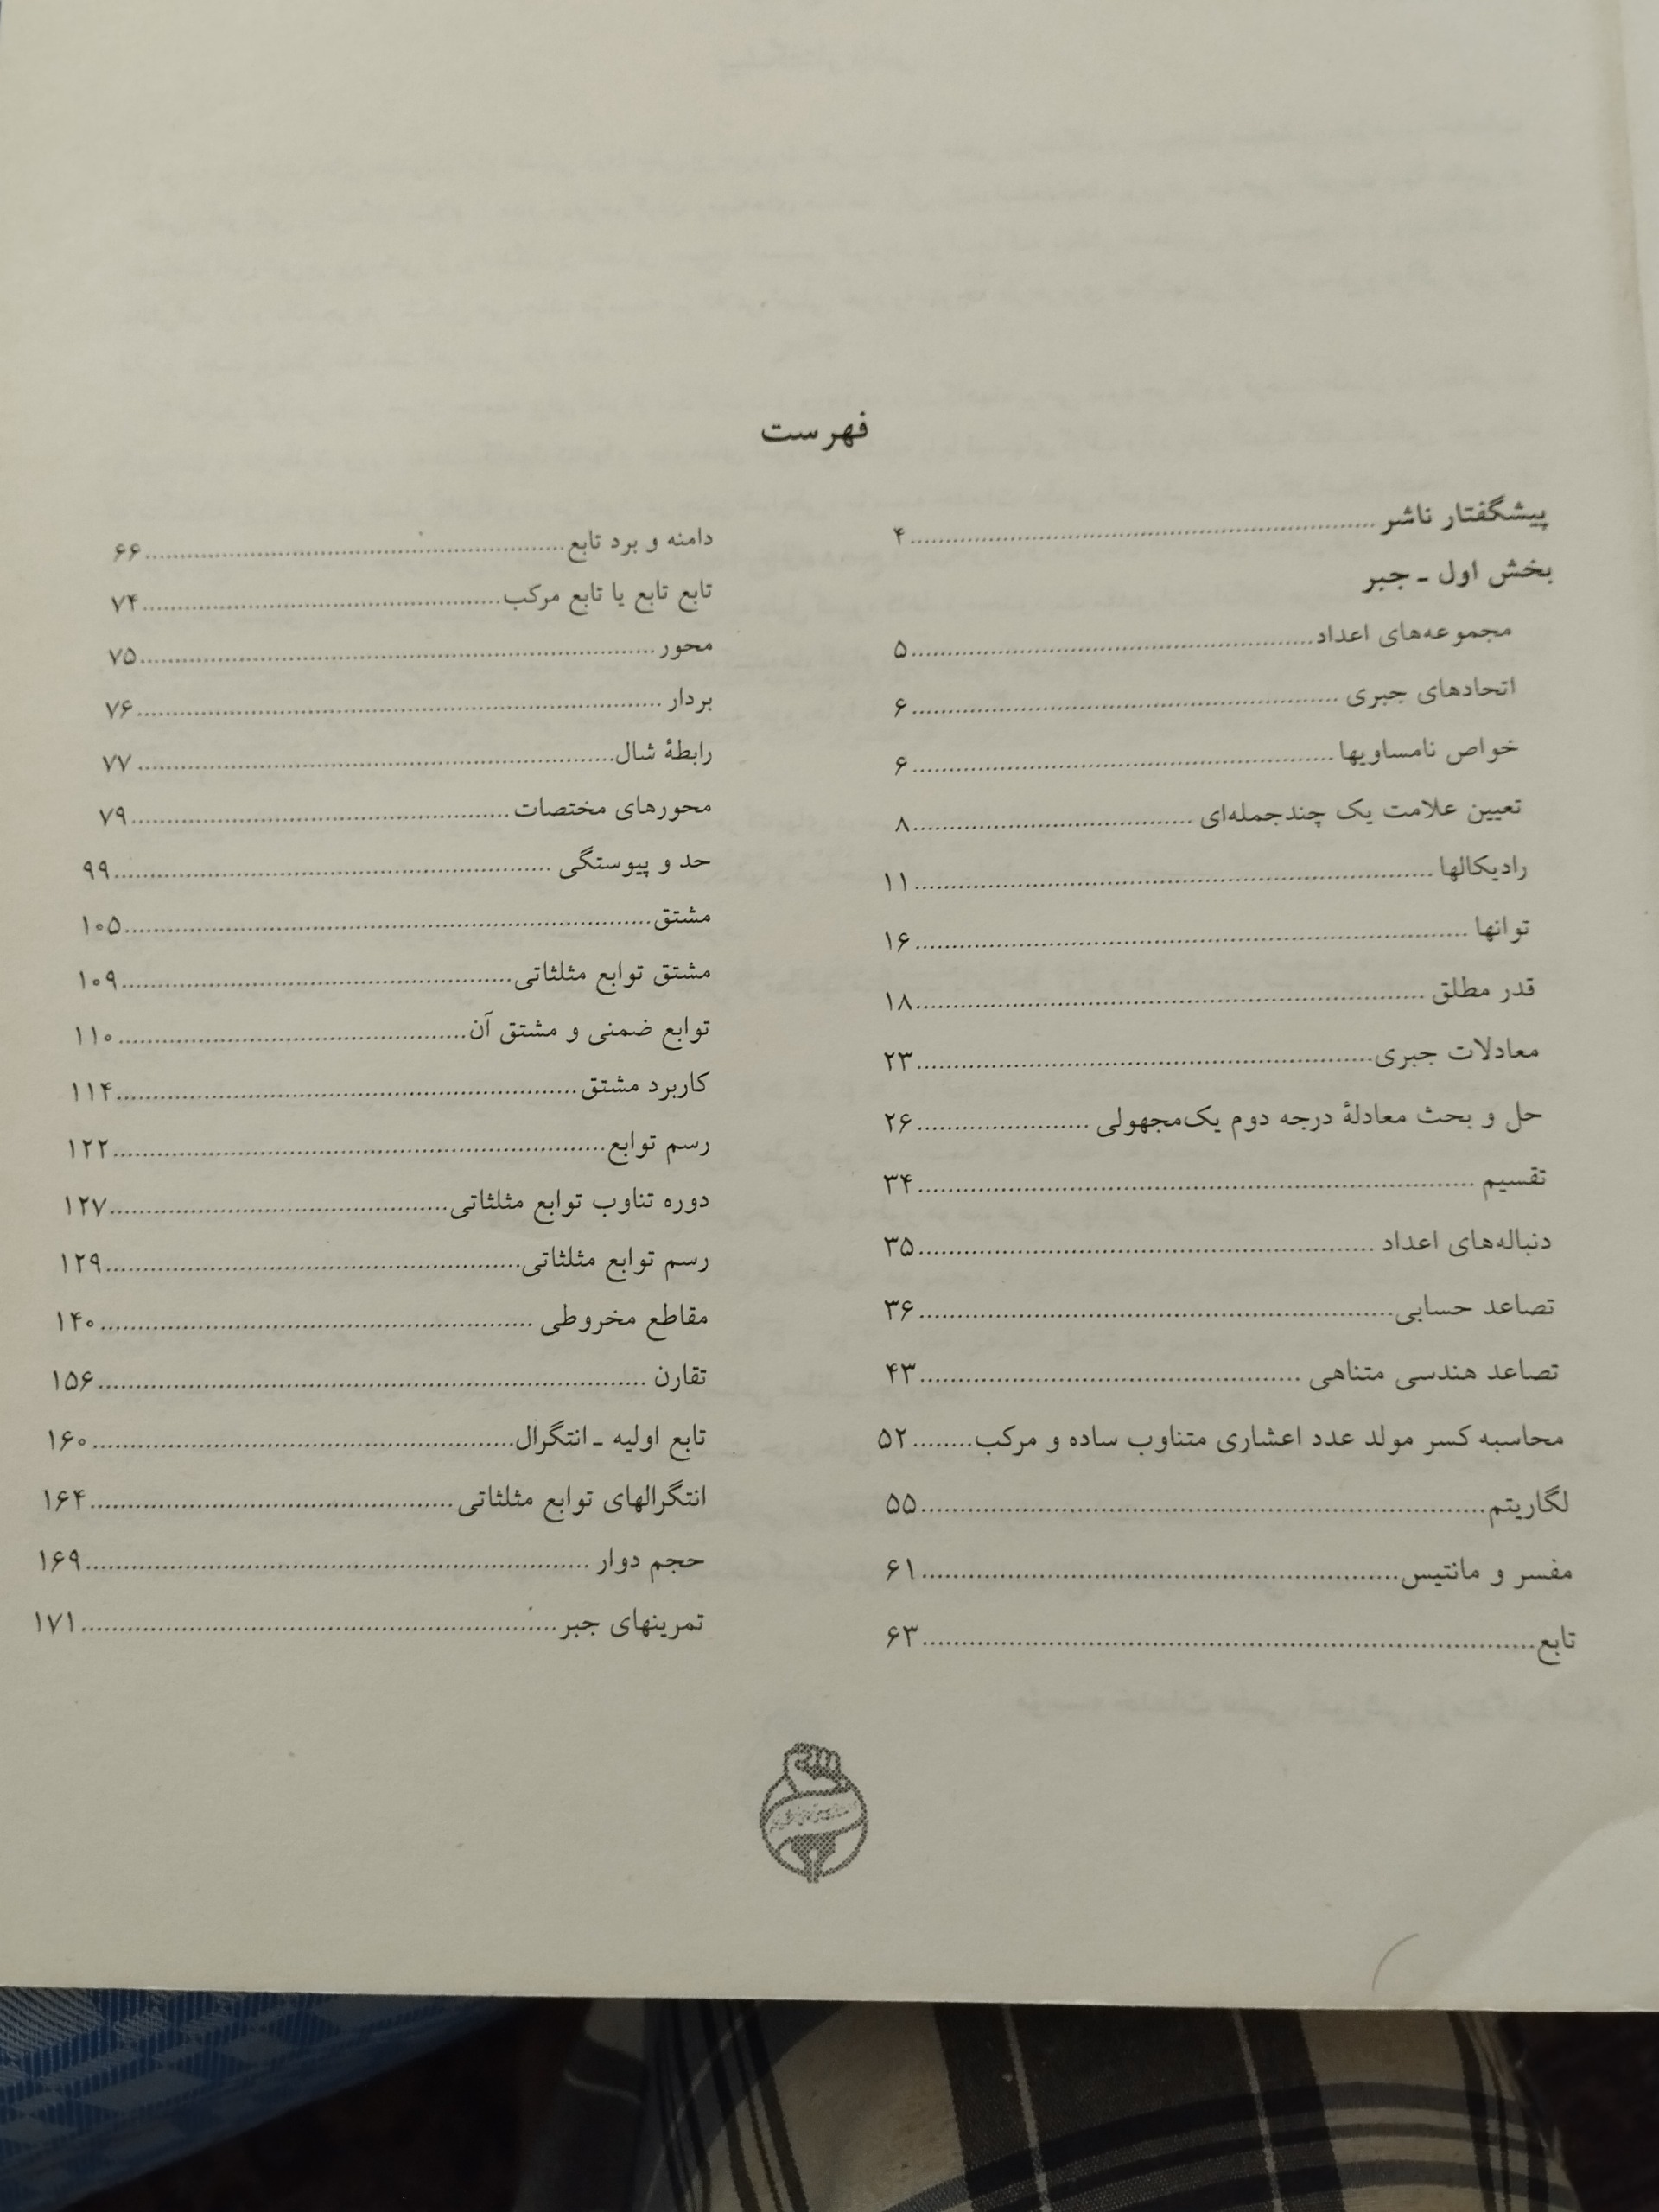 فهرست
پیشگفتار ناشر ........ ۴
بخش اول ـ جبر
مجموعه‌های اعداد ........ ۵
اتحادهای جبری ........ ۶
خواص نامساویها ........ ۶
تعیین علامت یک چندجمله‌ای ........ ۸
رادیکالها ........ ۱۱
توانها ........ ۱۶
قدر مطلق ........ ۱۸
معادلات جبری ........ ۲۳
حل و بحث معادلهٔ درجه دوم یک‌مجهولی ........ ۲۶
تقسیم ........ ۳۴
دنباله‌های اعداد ........ ۳۵
تصاعد حسابی ........ ۳۶
تصاعد هندسی متناهی ........ ۴۳
محاسبه کسر مولد عدد اعشاری متناوب ساده و مرکب ........ ۵۲
لگاریتم ........ ۵۵
مفسر و مانتیس ........ ۶۱
تابع ........ ۶۳
دامنه و برد تابع ........ ۶۶
تابع تابع یا تابع مرکب ........ ۷۴
محور ........ ۷۵
بردار ........ ۷۶
رابطهٔ شال ........ ۷۷
محورهای مختصات ........ ۷۹
حد و پیوستگی ........ ۹۹
مشتق ........ ۱۰۵
مشتق توابع مثلثاتی ........ ۱۰۹
توابع ضمنی و مشتق آن ........ ۱۱۰
کاربرد مشتق ........ ۱۱۴
رسم توابع ........ ۱۲۲
دوره تناوب توابع مثلثاتی ........ ۱۲۷
رسم توابع مثلثاتی ........ ۱۲۹
مقاطع مخروطی ........ ۱۴۰
تقارن ........ ۱۵۶
تابع اولیه ـ انتگرال ........ ۱۶۰
انتگرالهای توابع مثلثاتی ........ ۱۶۴
حجم دوار ........ ۱۶۹
تمرینهای جبر ........ ۱۷۱